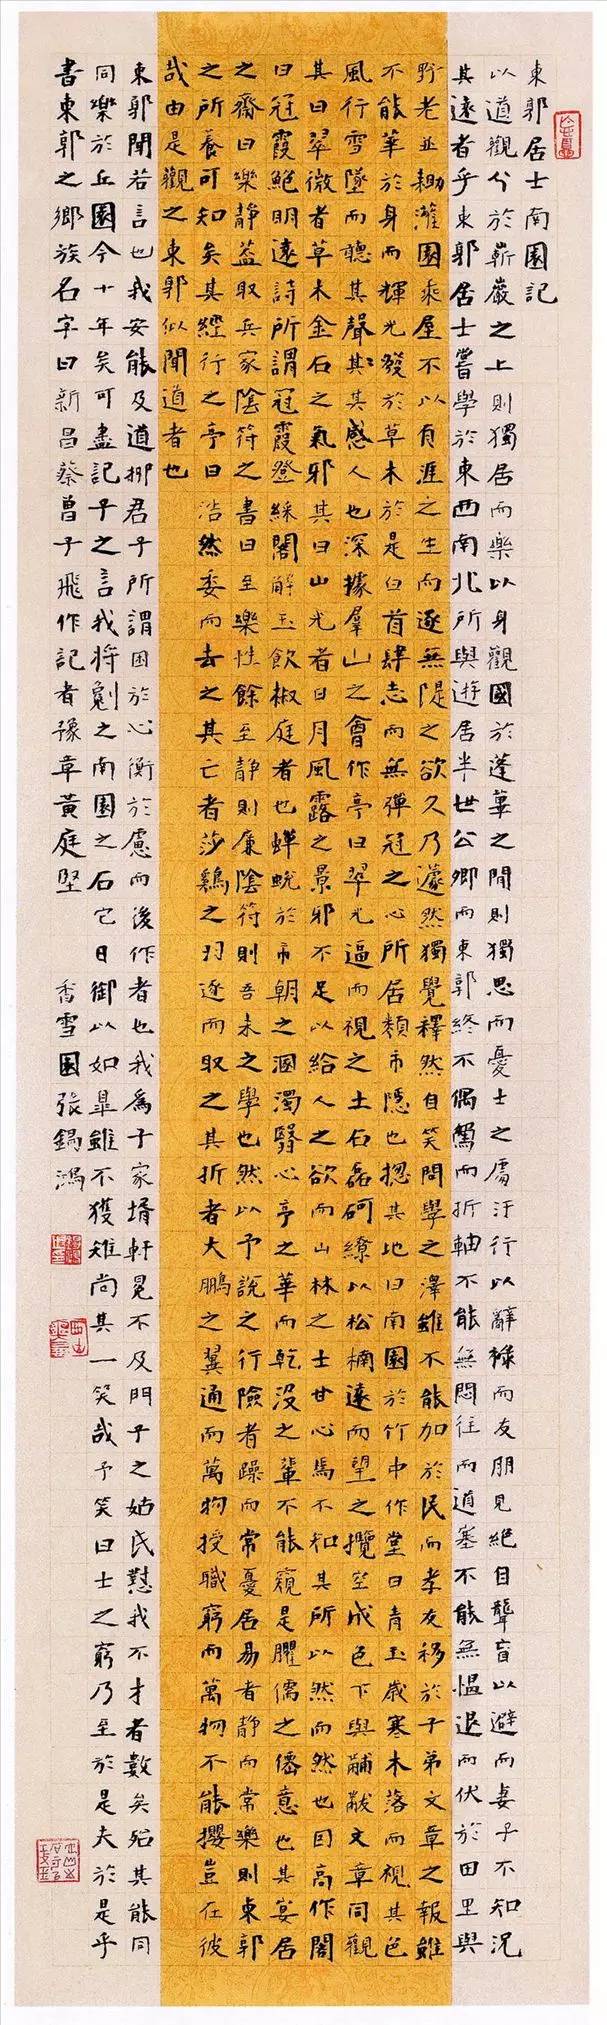 東郭居士南園記
以道觀分於嶄巖之上則獨居而樂以身觀國於蓬蓽之間則獨思而憂士之處汙行以辭祿而友朋見絕自聾盲以避而妻子不知況
其遠者乎東郭居士嘗學於東西南北所與遊居半世公卿而東郭終不偶駕而折軸不能無悶往而道塞不能無慍退而伏於田里與
野老並耡灌園乘屋不以有涯之生而逐無隄之欲久乃蘧然獨覺釋然自笑問學之澤雖不能加於民而孝友移於子弟文章之報雖
不能華於身而輝光發於草木於是白首肆志而無彈冠之心所居類市隱也揔其地曰南園於竹中作堂曰青玉歲寒木落而視其色
風行雪墜而聽其聲其其感人也深據羣山之會作亭曰翠光逼而視之土石磊砢繚以松楠遠而望之攬空成色下與黼黻文章同觀
其曰翠微者草木金石之氣邪其曰山光者日月風露之景邪不足以給人之欲而山林之士甘心焉不知其所以然而然也因高作閣
曰冠霞鮑明遠詩所謂冠霞登綵閣解玉飲椒庭者也蟬蛻於市朝之溷濁翳心亨之華而乾沒之輩不能窺是臞儒之僊意也其宴居
之齋曰樂靜蓋取兵家陰符之書曰至樂性餘至靜則廉陰符則吾未之學也然以予說之行險者躁而常憂居易者靜而常樂則東郭
之所養可知矣其經行之亭曰浩然委而去之其亡者莎雞之羽逐而取之其折者大鵬之翼通而萬物授職窮而萬物不能攖豈在彼
哉由是觀之東郭似聞道者也
東郭聞若言也我安能及道抑君子所謂困於心衡於慮而後作者也我為子家壻軒冕不及門子之姑氏懟我不才者數矣殆其能同
同樂於丘園今十年矣可盡記子之言我將劖之南園之石它日御以如臯雖不獲雉尚其一笑哉予笑曰士之窮乃至於是夫於是乎
書東郭之鄉族名字曰新昌蔡曾子飛作記者豫章黃庭堅 香雪園張錫鴻